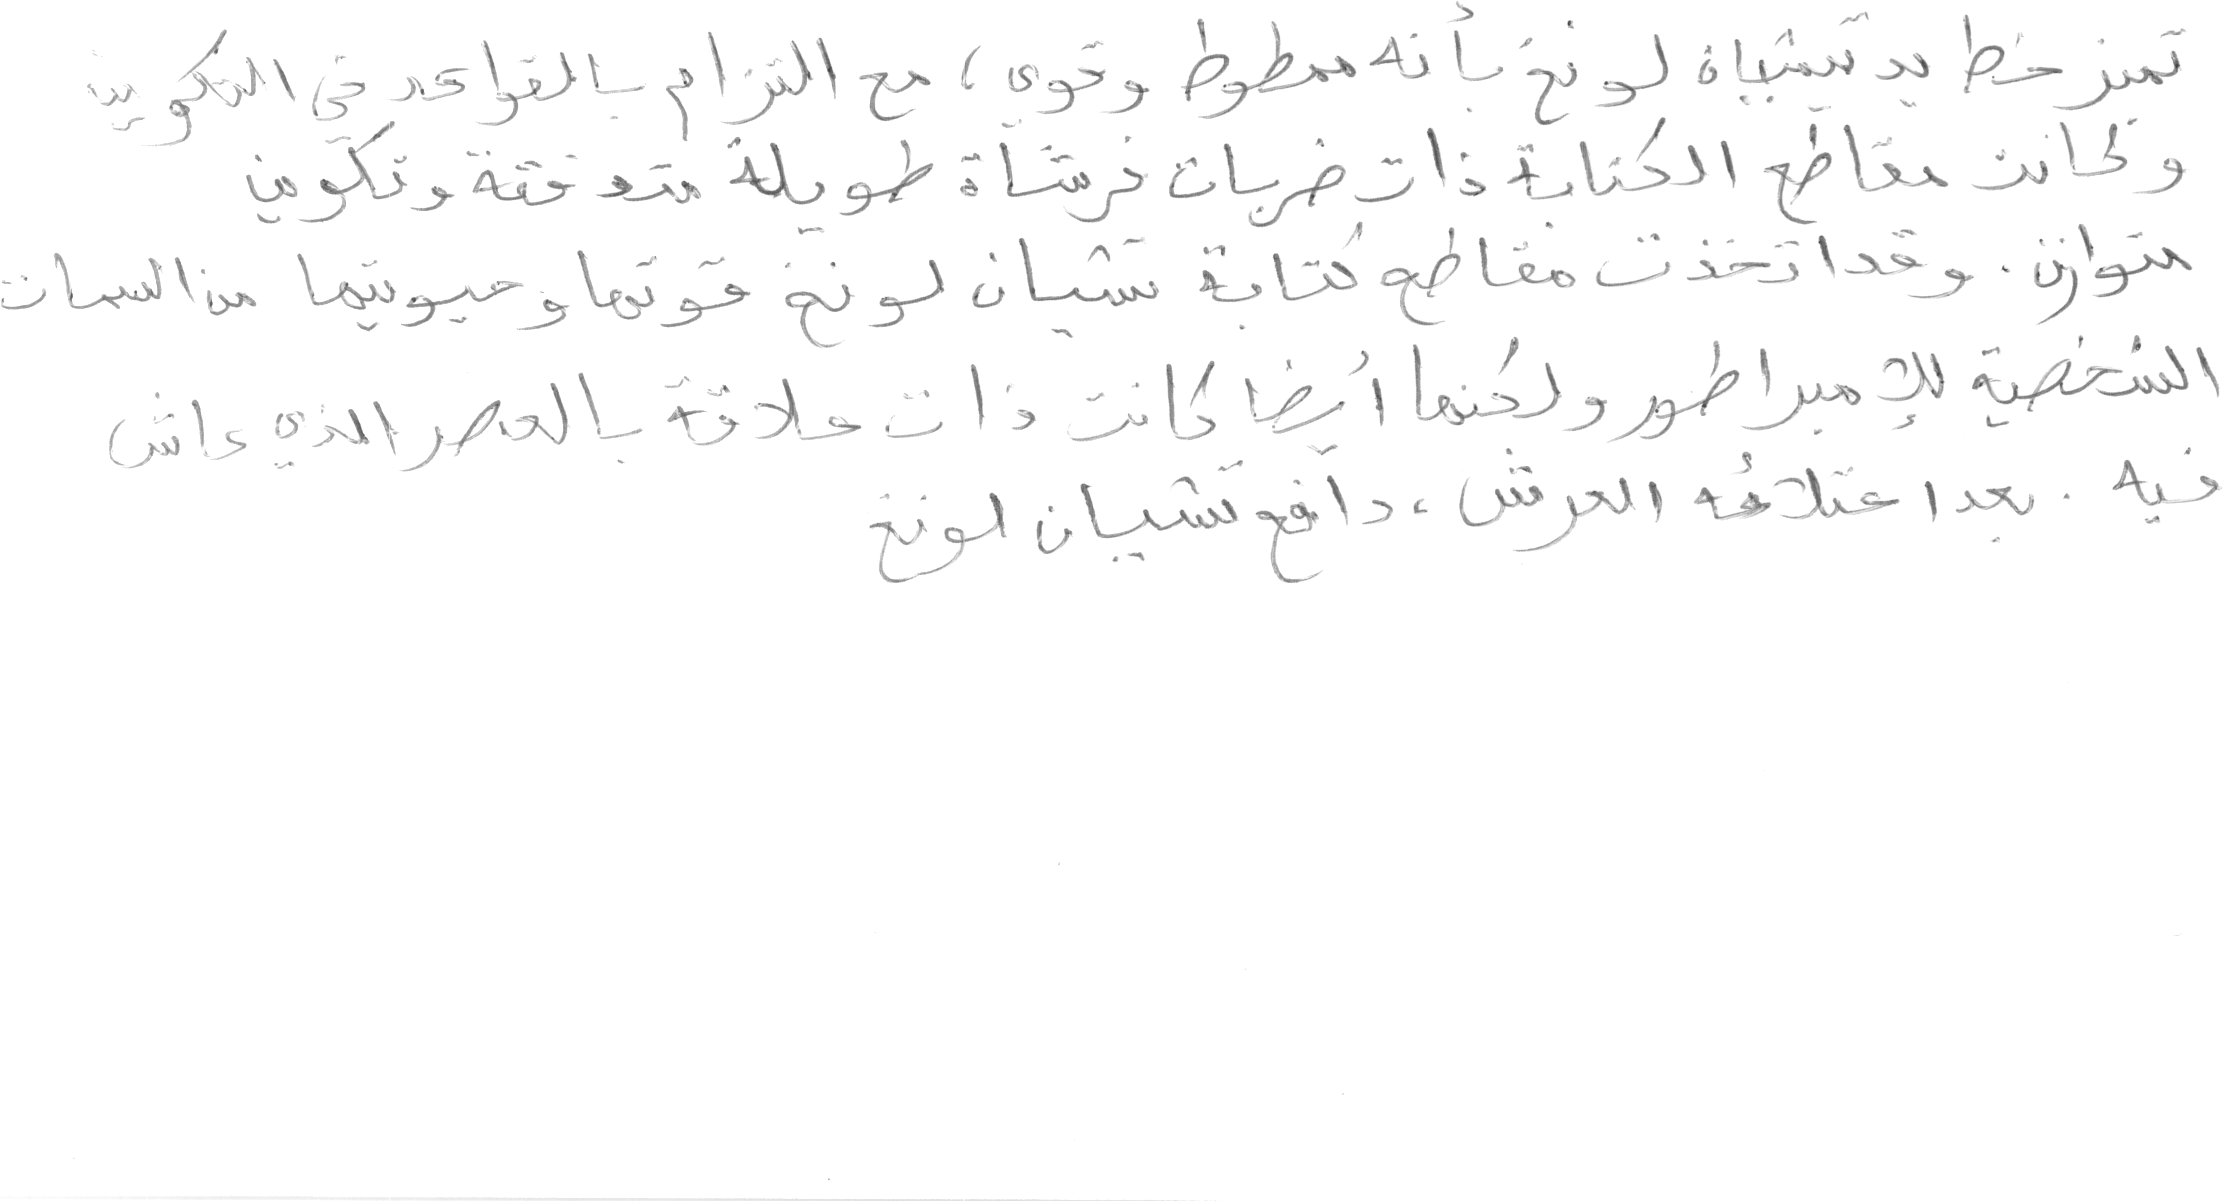 تميز خط يد تشيان لونغ بأنه ممطوط وقوي، مع التزام بالقواعد في التكوين
وكانت مقاطع الكتابة ذات ضربات فرشاة طويلة متدفقة وتكوين
متوازن. وقد اتخذت مقاطع كتابة تشيان لونغ قوتها وحيويتها من السمات
الشخصية للإمبراطور ولكنها أيضا كانت ذات علاقة بالعصر الذي عاش
فيه. بعد اعتلائه العرش، دافع تشيان لونغ